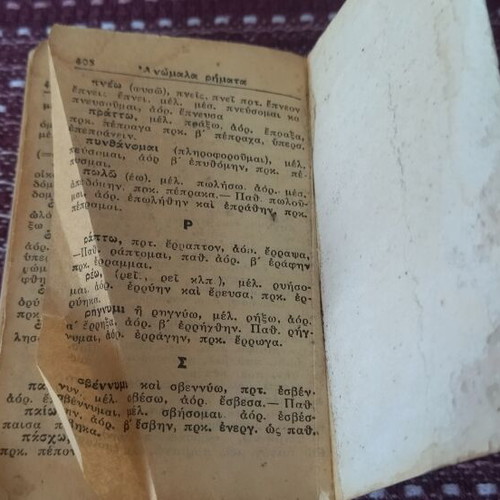 Ἀνώμαλα ρήματα
πνέω (φυσῶ), πνεῖς, πνεῖ πρτ. ἔπνεον
ἔπνεις, ἔπνει, μέλ. μέσ. πνεύσομαι
πνευσοῦμαι, ἀόρ. ἔπνευσα
πράττω, μέλ. πράξω, ἀόρ. ἔπραξα,
πρκ. πέπραγα πρκ. β΄ πέπραχα, ὑπερσ.
ἐπεπράγειν.
πυνθάνομαι (πληροφοροῦμαι), μέλ.
πεύσομαι, ἀόρ β΄ ἐπυθόμην, πρκ. πέ-
πυσμαι.
πωλῶ (έω). μέλ. πωλήσω. ἀόρ. μέσ.
ἀπεδόμην. πρκ. πέπρακα.— Παθ. πωλοῦ-
μαι, ἀόρ. ἐπωλήθην καὶ ἐπράθην, πρκ.
πέπραμαι.
Ρ
ράπτω, πρτ. ἔρραπτον, ἀόρ. ἔρραψα,
—Παθ. ράπτομαι, παθ. ἀόρ. β΄ ἐράφην
πρκ. ἔρραμμαι.
ρέω, (ρεῖς, ρεῖ κλπ), μέλ. ρυήσο-
μαι ἀόρ. ἐρρύην καὶ ἔρευσα, πρκ. ἐρ-
ρύηκα.
ρήγνυμι ἢ ρηγνύω, μέλ. ρήξω, ἀόρ.
α΄ ἔρρηξα, ἀόρ. β΄ ἐρρήχθην. Παθ. ρήγ-
νυμαι, ἀόρ. ἐρράγην, πρκ. ἔρρωγα.
Σ
σβέννυμι καὶ σβεννύω, πρτ. ἐσβέν-
νυν, μέλ. σβέσω, ἀόρ. ἔσβεσα.— Παθ
σβέννυμαι, μέλ. σβήσομαι. ἀόρ. ἐσβέσ-
ἀόρ. β΄ ἔσβην, πρκ. ἐνεργ. ὡς παθ.
ἀόρ.
παίω
παισα
πάσχω,
πρκ. πέπον